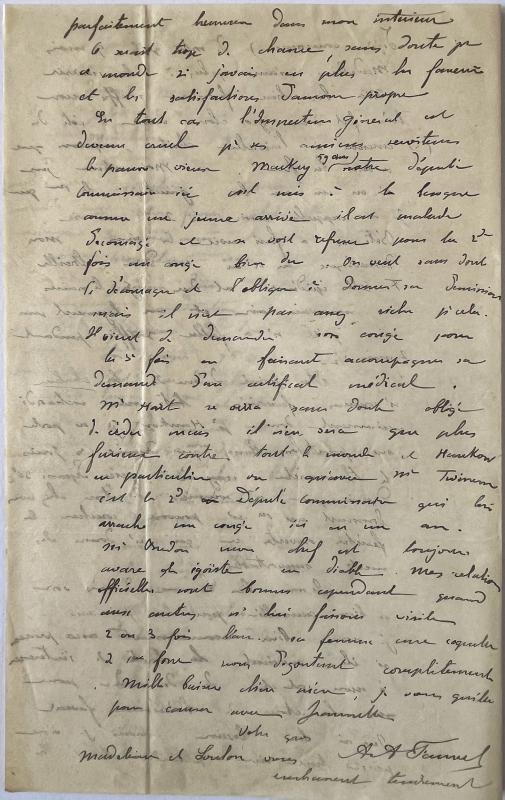 parfaitement heureux dans mon intérieur
Ce serait trop de chance, sans doute pr
ce monde si j'avais en plus les faveurs
et les satisfactions d'amour propre
En tout cas l'Inspecteur général est
devenu cruel pr ses anciens serviteurs
le pauvre vieux Mackey notre député
commissaire ici est mis à la
comme un jeune arrivé il est malade
découragé et se voit refuser pour la 2e
fois un congé bien du On veut sans dout
le décourager et l'obliger à donner sa démission
mais il n'est pas assez riche pr cela.
Il vient de demander son congé pour
la 3e fois en faisant accompagner sa
demande d'un certificat médical.
Mr Hart se verra sans doute obligé
de céder mais il n'en sera que plus
furieux contre tout le monde et Hankow
en particulier
c'est le 2d Député Commissaire qui lui
arrache un congé ici en un an.
notre chef est toujours
avare et égoïste en diable. Mes relations
officielles sont bonnes cependant quand
aux autres ns lui faisons visite
2 ou 3 fois l'an. sa femme une coquette
2 me force nous dégoutent complètement
. Mille baisers chère mère, je vous quitte
pour causer avec Jeannette
Votre gros
A. A.
Madeleine et Loulou vous
embrassent tendrement